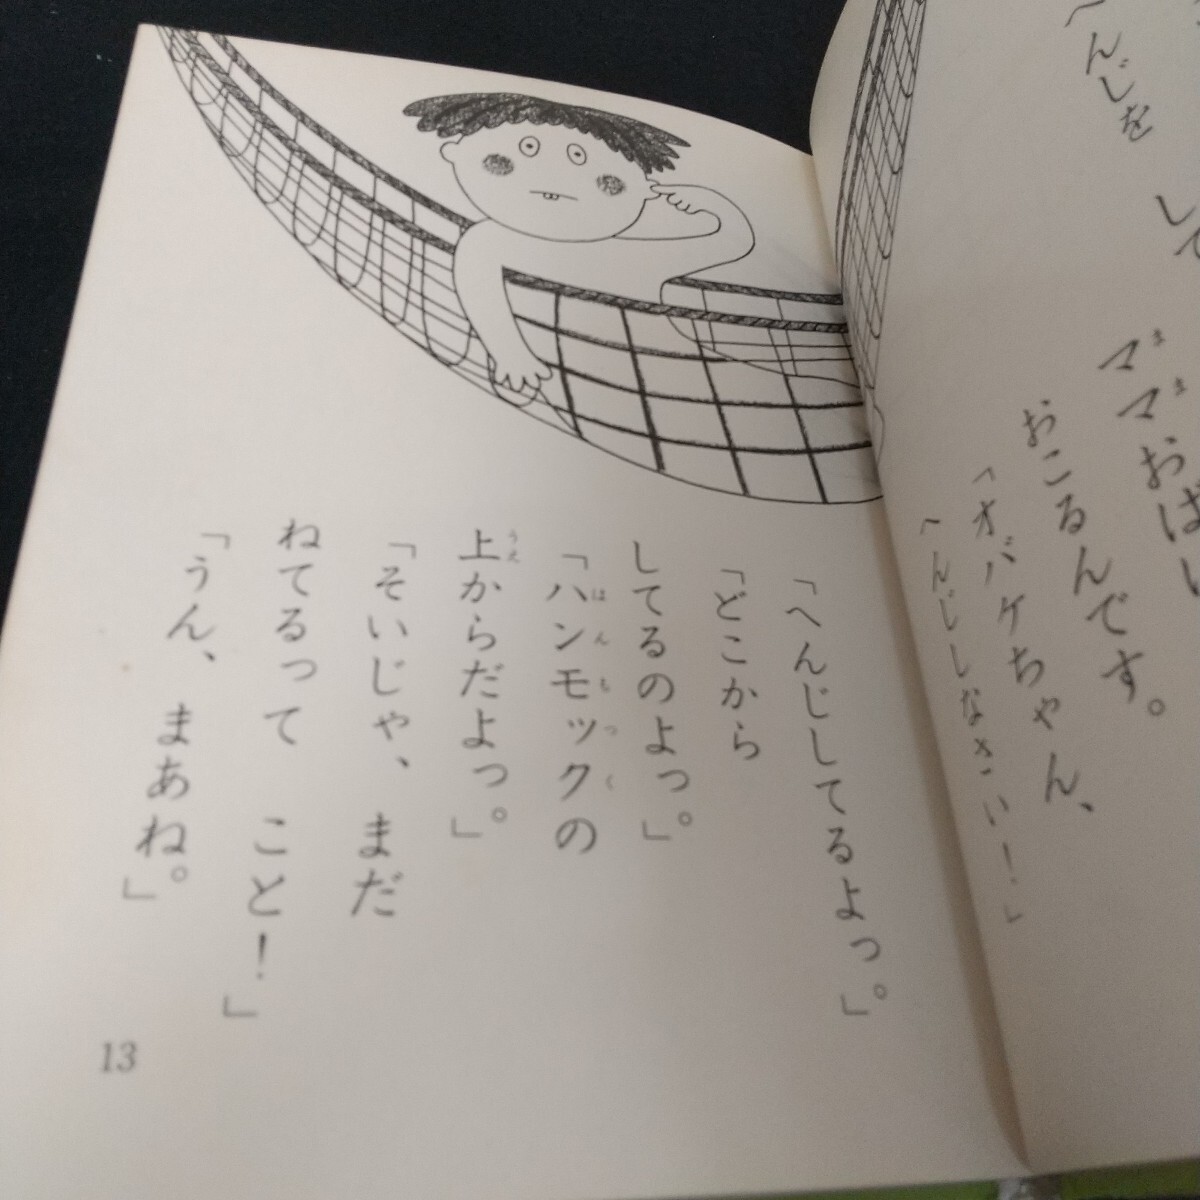 へんじを　して
ママおばい
おこるんです。
「オバケちゃん、
へんじしなさい！」
「へんじしてるよっ。」
「どこから
してるのよっ。」
「ハンモックの
上からだよっ。」
「そいじゃ、まだ
ねてるって　こと！」
「うん、まあね。」
13